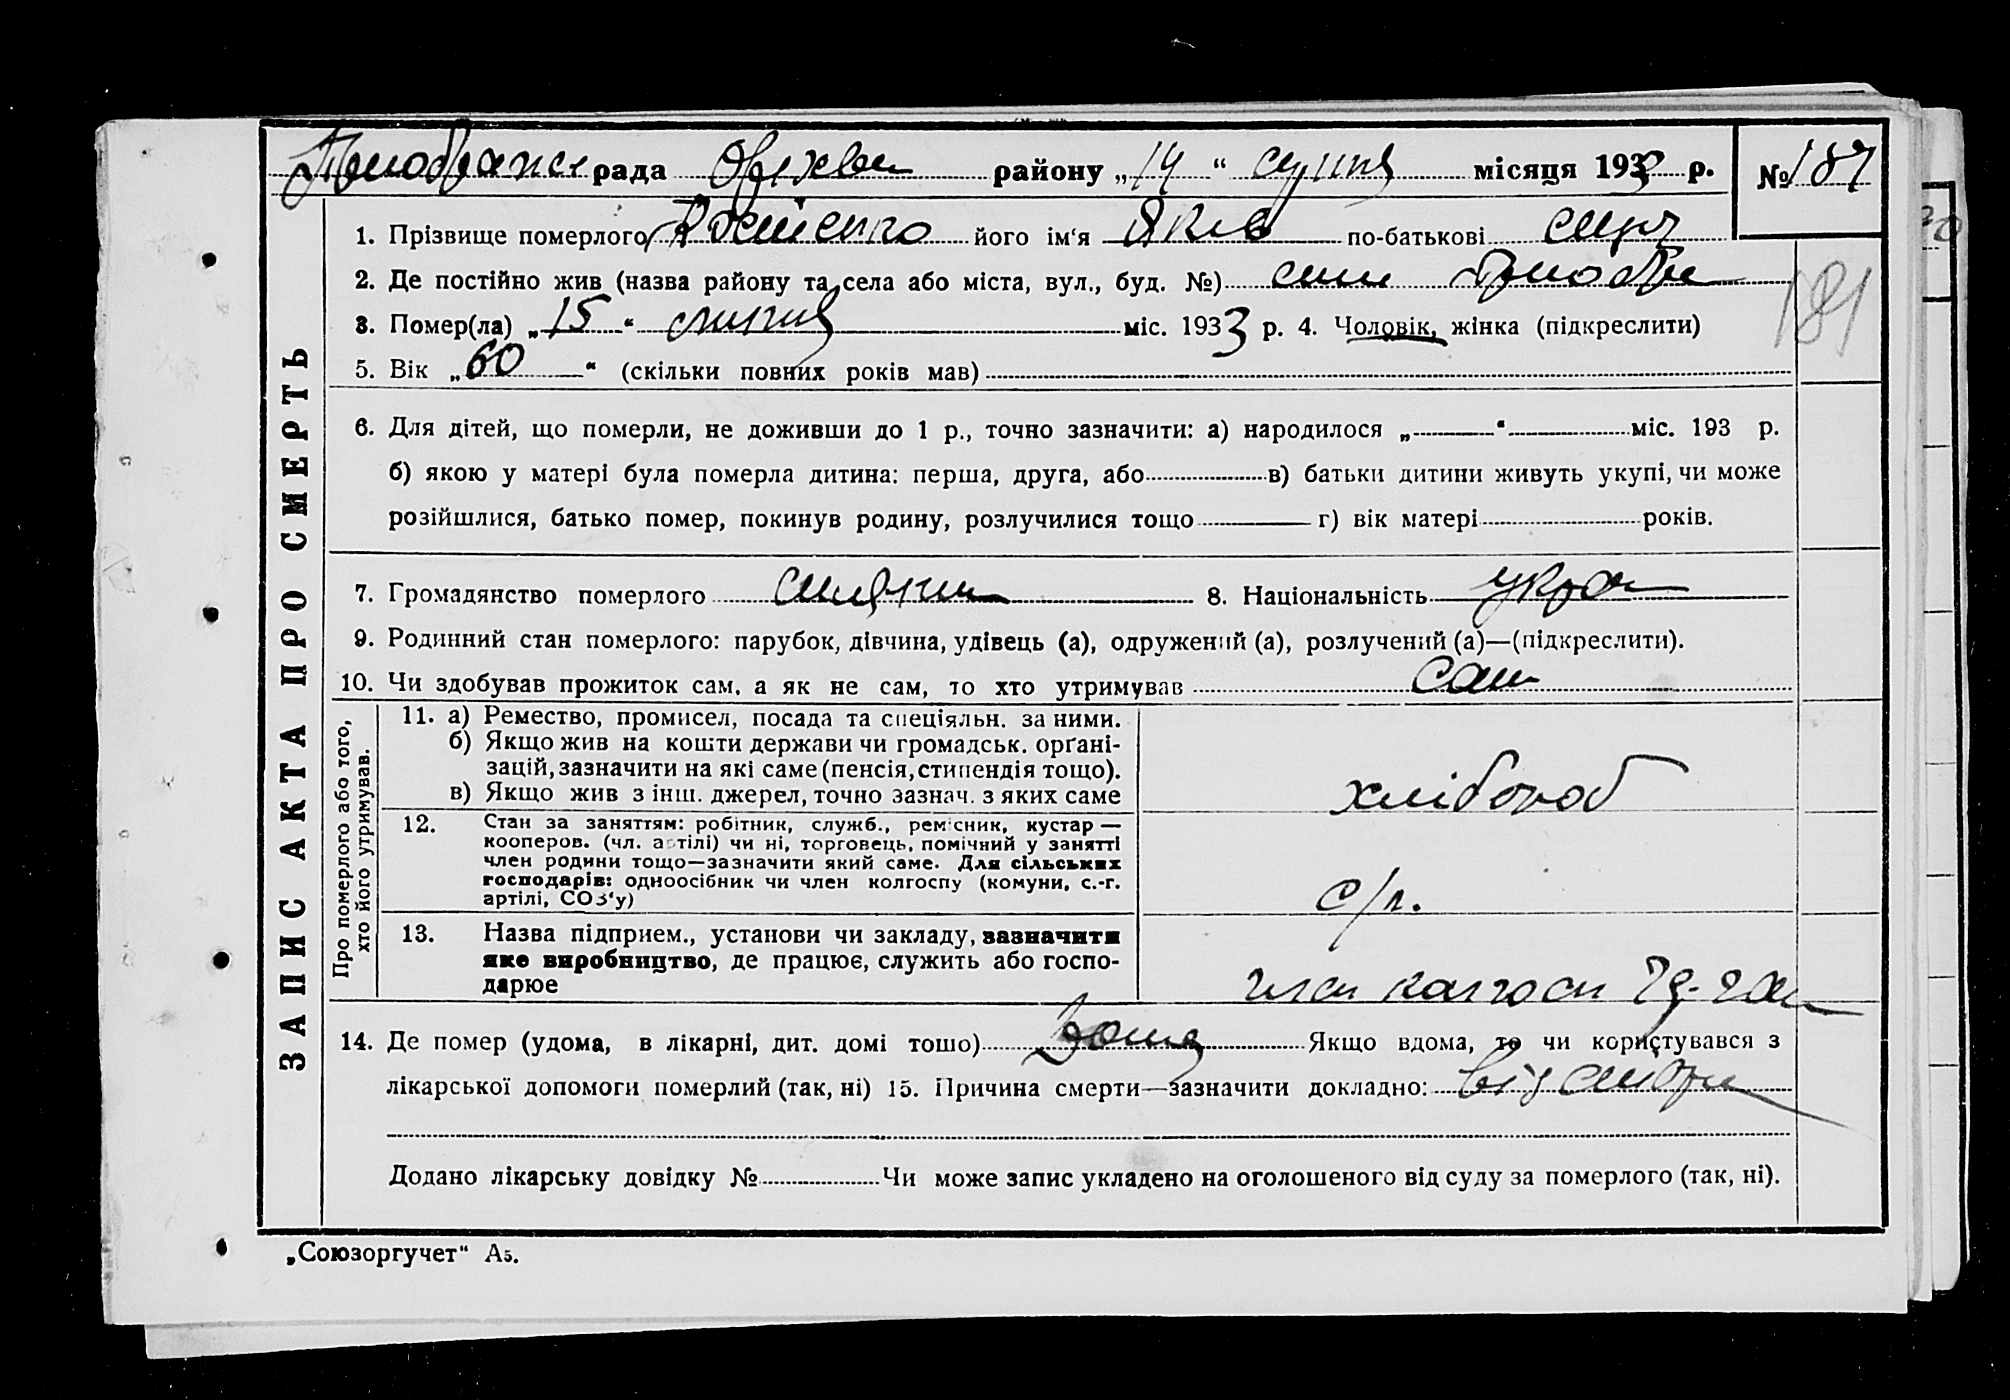 рада Оріхів району „14“ серпня місяця 1933 р. № 187
1. Прізвище померлого його ім‘я Яків по-батькові
2. Де постійно жив (назва району та села або міста, вул., буд. №)
3. Помер(ла) „15“ липня міс. 1933 р. 4. Чоловік, жінка (підкреслити)
181
5. Вік „60“ (скільки повних років мав)
6. Для дітей, що померли, не доживши до 1 р., точно зазначити: а) народилося „ “ міс. 193 р.
б) якою у матері була померла дитина: перша, друга, або в) батьки дитини живуть укупі, чи може
розійшлися, батько помер, покинув родину, розлучилися тощо г) вік матері років.
7. Громадянство померлого 8. Національність укра
9. Родинний стан померлого: парубок, дівчина, удівець (а), одружений (а), розлучений (а)—(підкреслити).
10. Чи здобував прожиток сам, а як не сам, то хто утримував Сам
ЗАПИС АКТА ПРО СМЕРТЬ
Про померлого або того,
хто його утримував.
11. а) Ремество, промисел, посада та спеціяльн. за ними.
б) Якщо жив на кошти держави чи громадськ. орґані-
зацій, зазначити на які саме (пенсія, стипендія тощо).
в) Якщо жив з інш. джерел, точно зазнач. з яких саме
хлібороб
12. Стан за заняттям: робітник, служб., ремісник, кустар —
кооперов. (чл. артілі) чи ні, торговець, помічний у занятті
член родини тощо—зазначити який саме. Для сільських
господарів: одноосібник чи член колгоспу (комуни, с.-г.
артілі, СОЗ‘у)
с/г.
13. Назва підприєм., установи чи закладу, зазначити
яке виробництво, де працює, служить або госпо-
дарює
член колгосп
14. Де помер (удома, в лікарні, дит. домі тощо) Дома Якщо вдома, то чи користувався з
лікарської допомоги померлий (так, ні) 15. Причина смерти—зазначити докладно: від
Додано лікарську довідку № Чи може запис укладено на оголошеного від суду за померлого (так, ні).
„Союзоргучет“ А5.